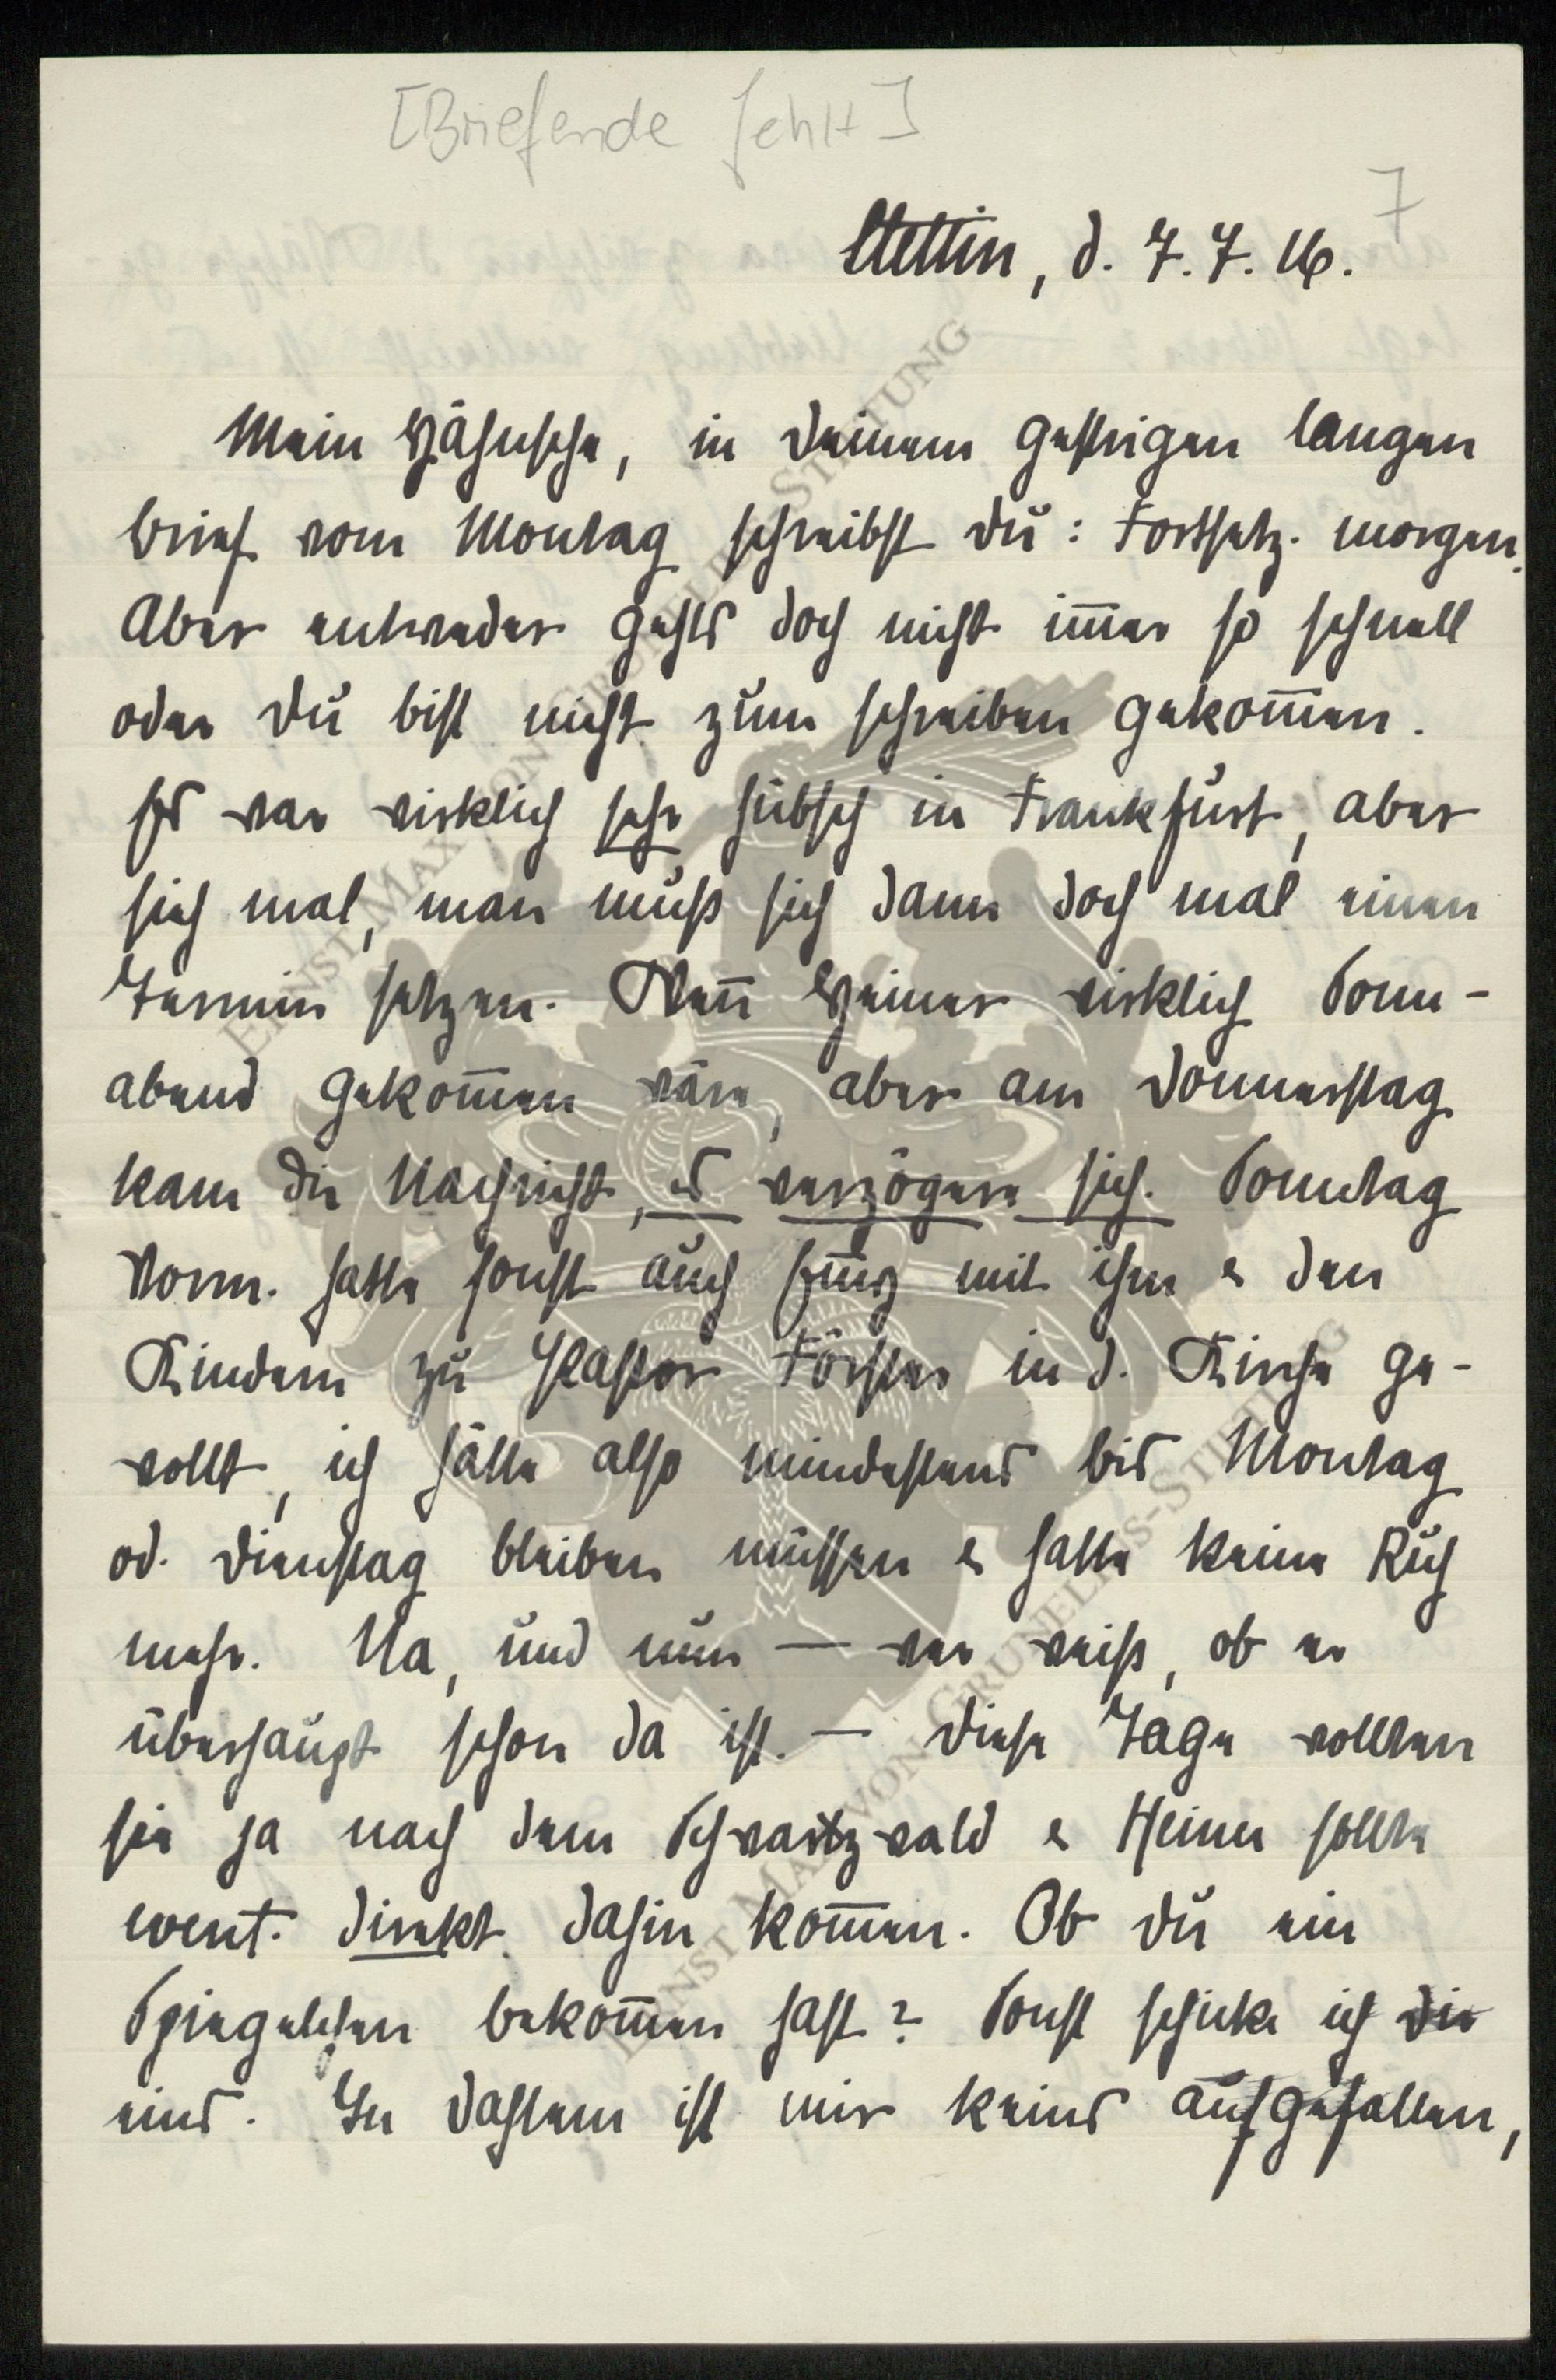 [Briefende fehlt]
7
Stettin, d. 7. 7. 16.
Mein Hähnsche, in Deinem gestrigen langen
Brief vom Montag schreibst Du: Fortsetz. morgen.
Aber entweder gehts doch nicht im̅er so schnell
oder Du bist nicht zum schreiben gekom̅en.
Es war wirklich sehr hübsch in Frankfurt, aber
sieh mal, man muß sich dann doch mal einen
Termin setzen. Wen̅ Heiner wirklich Sonn-
abend gekom̅en wäre, aber am Donnerstag
kam die Nachricht, es verzögere sich. Sonntag
Vorm. hatte sonst auch mit ihm & den
Kindern zu Pastor Förster in d. Kirche ge-
wollt, ich hätte also mindestens bis Montag
od. Dienstag bleiben müssen & hatte keine Ruh
mehr. Na, und nun — wer weiß, ob er
überhaupt schon da ist. — Diese Tage wollten
sie ja nach dem Schwarzwald & Heiner sollte
event. direkt dahin kom̅en. Ob Du ein
Spiegelchen bekom̅en hast? Sonst schicke ich Dir
eins. In Deinem ist mir keins aufgefallen,
ERNST MAX VON GRUNELIUS-STIFTUNG
ERNST MAX VON GRUNELIUS-STIFTUNG